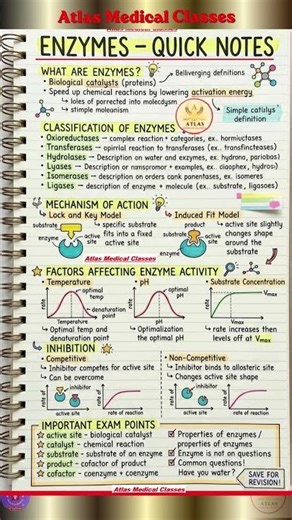 Atlas Medical Classes
ENZYMES – QUICK NOTES
WHAT ARE ENZYMES?
Bellverging definitions
Biological catalysts (proteins)
Speed up chemical reactions by lowering activation energy
loles of porrected into moledysm
stimple moleanism
Simple catilys' definition
ATLAS
CLASSIFICATION OF ENZYMES
Oxioreductases → complex reaction + categories, ex. hormiuctases
Transferases → opirrial reaction to transferases (ex. transfincteases)
Hydrolases → Description on water and enzymes, ex. hydrona, pariobas)
Lyases → Description or ramsromor + examples, ex. claophex, hydrosi)
Isomerases → description on orders cank panentases, ex. isomeres
Ligases → description of enzyme + molecule (ex. substrate, ligasses)
MECHANISM OF ACTION
Lock and Key Model
substrate
enzyme
active site
specific substrate fits into a fixed active site
Induced Fit Model
product
substrate
enzyme
active site
active site slightly changes shape around the substrate
Atlas Medical Classes
FACTORS AFFECTING ENZYME ACTIVITY
Temperature
optimal temp
denaturation point
rate
Temperature
Optimal temp and denaturation point
pH
optimal pH
rate
pH
Optimalization the optimal pH
Substrate Concentration
Vmax
rate
rate increases then levels off at Vmax
INHIBITION
Competitive
Inhibitor competes for active site
Can be overcome
inhibitor
active site
rate of reaction
Non-Competitive
Inhibitor binds to allosteric site
Changes active site shape
inhibitor
active site
rate of reaction
IMPORTANT EXAM POINTS
active site - biological catalyst
catalyst - chemical reaction
substrate - substrate of an enzyme
product - cofactor of product
cofactor - coenzyme + coenzyme
Properties of enzymes / properties of enzymes
Enzyme is not on questions
Common questions!
Have you water?
SAVE FOR REVISION!
Atlas Medical Classes
ATLAS